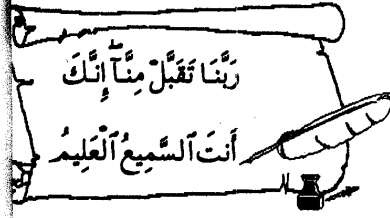 رَبَّنَا تَقَبَّلْ مِنَّآ إِنَّكَ
أَنتَ ٱلسَّمِيعُ ٱلْعَلِيمُ